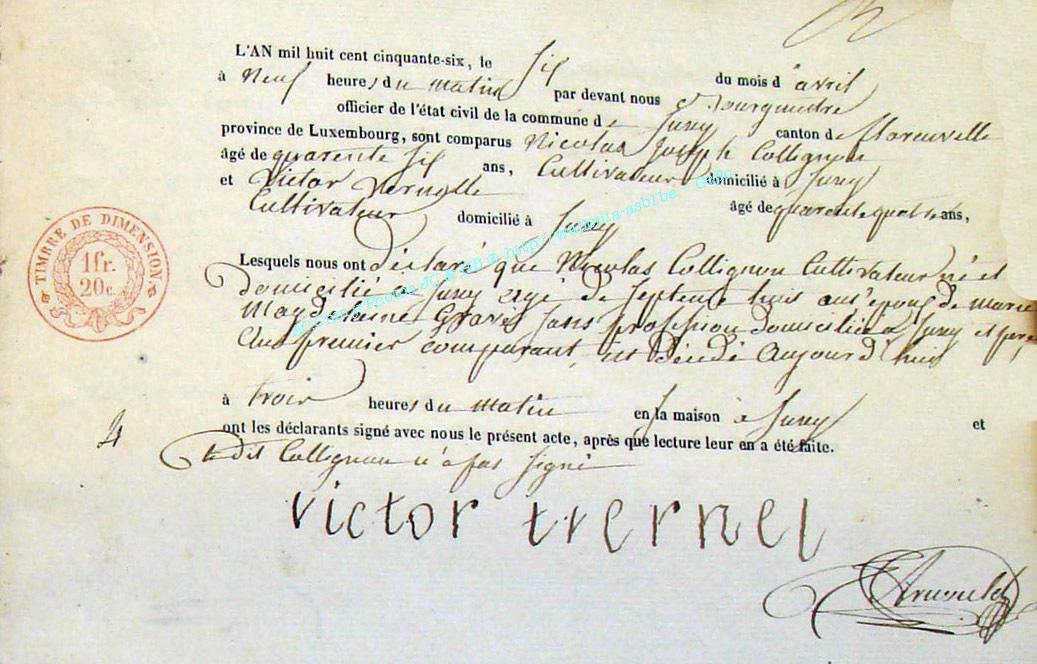 L'AN mil huit cent cinquante-six, le Six du mois d'avril
à Neuf heures du matin par devant nous Bourgmestre
officier de l'état civil de la commune de Suxy canton de florenville
province de Luxembourg, sont comparus Nicolas Joseph Collignon
âgé de quarente six ans, Cultivateur domicilié à Suxy
et Victor
Cultivateur domicilié à Suxy âgé de quarente quatre ans,
TIMBRE DE DIMENSION
1 fr.
20 c.
Lesquels nous ont déclaré que Nicolas Collignon Cultivateur né et
domicilié a Suxy agé de septente huit ans époux de marie
Magdeleine Gravis sans profession domiciliée a Suxy et père
Au premier comparant, est décédé Aujourd'hui
à trois heures du matin en sa maison à Suxy et
4
ont les déclarants signé avec nous le présent acte, après que lecture leur en a été faite.
ledit Collignon n'a pas signé
victor trernel
Arnould